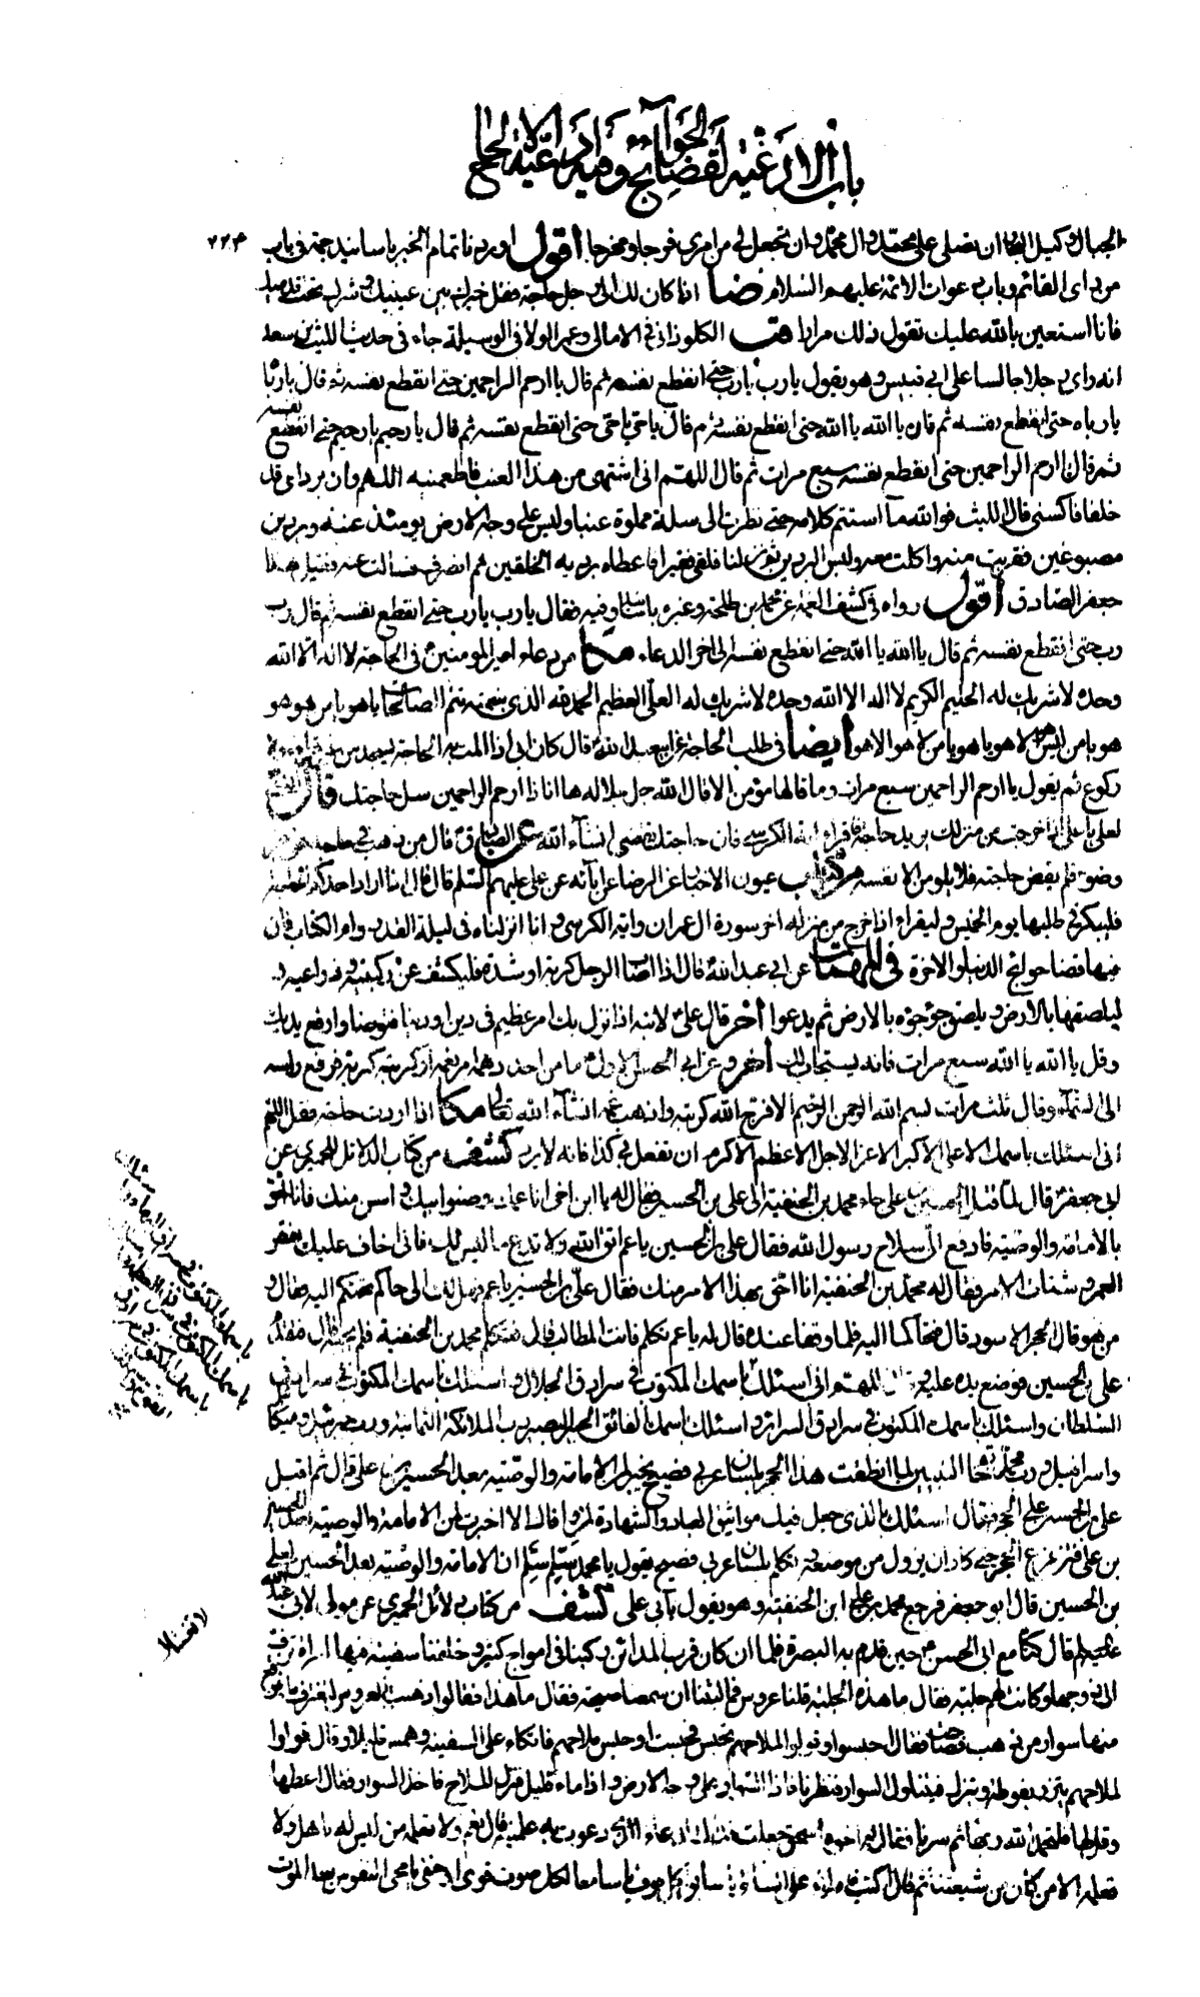 باب الادعية لقضاء الحوائج وفيه ادعية الالحاح
۲۲۴
الجبال وكيل الف ان تصلي على محمد وال محمد وان تجعل لي من امري فرجا ومخرجا اقول اوردنا تمام الخبر باسانيد جمة في باب
من راى القائم وباب دعوات الائمة عليهم السلام ضا اذا كان لك الى رجل حاجة فقل خيرك بين عينيك وشرك تحت قدميك
فانا استعين بالله عليك تقول ذلك مرارا قب الكلوذاني في الامالي وعمر الولا في الوسيلة جاء في حديث الليث بن سعد
انه راى رجلا جالسا على ابي قبيس وهو يقول يارب يارب حتى انقطع نفسه ثم قال يا ارحم الراحمين حتى انقطع نفسه ثم قال يا رباه
يا رباه حتى انقطع نفسه ثم قال يا الله يا الله حتى انقطع نفسه ثم قال يا حي يا حي حتى انقطع نفسه ثم قال يا رحيم يا رحيم حتى انقطع نفسه
ثم قال يا ارحم الراحمين حتى انقطع نفسه سبع مرات ثم قال اللهم اني اشتهي من هذا العنب فاطعمنيه اللهم وان برداي قد
خلقا فاكسني قال الليث فوالله ما استتم كلامه حتى نظرت الى سلة مملوة عنبا وليس على وجه الارض يومئذ عنب وبردين
مصبوغين فقربت منه واكلت معه ولبس البردين نزلنا فلقي فقيرا فاعطاه برديه الخلقين ثم انصرف فسالت عنه فقيل هذا
جعفر الصادق اقول رواه في كشف الغمة عن محمد بن طلحة وغيره باسناد وفيه فقال يارب يارب حتى انقطع نفسه ثم قال رب
رب حتى انقطع نفسه ثم قال يا الله يا الله حتى انقطع نفسه الى اخر الدعاء مكا من دعاء امير المؤمنين في الحاجة لا اله الا الله
وحده لا شريك له الحليم الكريم لا اله الا الله وحده لا شريك له العلي العظيم الحمد لله الذي بنعمته تتم الصالحات يا هو يا من هو هو
هو يا من ليس هو الا هو يا هو يا من لا هو الا هو ايضا في طلب الحاجة عن ابي عبد الله قال كان ابي اذا المت به الحاجة يسجد من غير
ركوع ثم يقول يا ارحم الراحمين سبع مرات وما قالها مؤمن الا قال الله جل جلاله ها انا ذا ارحم الراحمين سل حاجتك قال
لعلي يا علي اذا خرجت من منزلك تريد حاجة فاقراء اية الكرسي فان حاجتك تقضى انشاء الله عن الصادق قال من ذهب في حاجة
وضوء فلم يقض حاجته فلا يلومن الا نفسه عيون الاخبار عن الرضا عن ابائه عن علي عليهم السلم قال قال اذا اراد احدكم
فليبكر في طلبها يوم الخميس وليقراء اذا خرج من منزله اخر سورة ال عمران واية الكرسي و انا انزلناه في ليلة القدر وام الكتاب فان
فيها قضا حوائج الدنيا والاخرة في المهمات عن ابي عبد الله قال اذا اصاب الرجل كربة او شدة فليكشف عن ركبتيه وذراعيه و
ليلصقها بالارض ويلصق جؤجؤه بالارض ثم يدعوا اخر قال علي لابنه اذا نزل بك امر عظيم في دين او دنيا فتوضا وارفع يديك
وقل يا الله يا الله سبع مرات فانه يستجاب لك اخر وعن ابي الحسن الاول ما من احد دهمه امر يغمه او كربته كربة فرفع راسه
الى السماء وقال ثلث مرات بسم الله الرحمن الرحيم الا فرج الله كربته واذهب غمه انشاء الله تعالى مكا اذا اردت حاجة فقل اللهم
اني اسئلك باسمك الاعلى الاكبر الاعز الاجل الاعظم الاكرم ان تفعل بي كذا فانه لا يرد كشف من كتاب الدلائل للحميري عن
ابي جعفر قال لما قتل الحسين بن علي جاء محمد بن الحنفية الى علي بن الحسين فقال له يا ابن اخي انا عمك وصنو ابيك و اسن منك فانا احق
بالامامة والوصية فادفع الي سلاح رسول الله فقال علي بن الحسين يا عم اتق الله ولا تدع ما ليس لك فاني اخاف عليك نقص
العمر وشتات الامر فقال له محمد بن الحنفية انا احق بهذا الامر منك فقال علي بن الحسين يا عم فهل لك الى حاكم نحتكم اليه فقال و
من هو قال الحجر الاسود قال فتحاكما اليه فلما وقفا عنده قال له يا عم تكلم فانت المطالب قال فتكلم محمد بن الحنفية فلم يجبه قال فتقدم
علي بن الحسين فوضع يده عليه وقال اللهم اني اسئلك باسمك المكتوب في سرادق الجلال و اسئلك باسمك المكتوب في سرادق
السلطان واسئلك باسمك المكتوب في سرادق السرائر و اسئلك باسمك الفائق الخبير البصير رب الملائكة الثمانية ورب جبرئيل وميكا
واسرافيل ورب محمد خاتم النبيين لما انطقت هذا الحجر بلسان عربي فصيح يخبر لمن الامامة والوصية بعد الحسين بن علي قال ثم اقبل
علي بن الحسين على الحجر فقال اسئلك بالذي جعل فيك مواثيق العباد والشهادة لمن وافاك الا اخبرت لمن الامامة والوصية بعد الحسين
بن علي فتزعزع الحجر حتى كاد ان يزول من موضعه وتكلم بلسان عربي فصيح يقول يا محمد سلم سلم ان الامامة والوصية بعد الحسين لعلي
بن الحسين قال ابو جعفر فرجع محمد بن علي ابن الحنفية وهو يقول بابي علي كشف من كتاب دلائل الحميري عن مولى لابي عبد الله
عليه السلم قال كنا مع ابي الحسن حين قدم به البصرة فلما ان كان قرب المدائن ركبنا في امواج كثيرة وخلفنا سفينة فيها امراة تزف
الى زوجها وكانت لهم جلبة فقال ما هذه الجلبة قلنا عروس فما لبثنا ان سمعنا صيحة فقال ما هذا فقالوا ذهبت العروس لتغترف ماء فوقع
منها سوار من ذهب فصاحت فقال احبسوا وقولوا لملاحهم يحبس فحبسنا وحبس ملاحهم فاتكاء على السفينة وهمس قليلا وقال قولوا
لملاحهم يتزر بفوطة وينزل فيتناول السوار فنظرنا فاذا السوار على وجه الارض و اذا ماء قليل فنزل الملاح فاخذ السوار فقال اعطها
وقل لها فلتحمد الله ربها ثم سرنا فقال له اخوه اسحق جعلت فداك الدعاء الذي دعوت به علمنيه قال نعم ولا تعلمه من ليس له باهل ولا
تعلمه الا من كان من شيعتنا ثم قال اكتب فاملاه علي انشاء يا سابق كل فوت يا سامعا لكل صوت قوي او خفي يا محيي النفوس بعد الموت
باسمك المكتوب في سرادق
باسمك المكتوب في سرادق
لا تغشاك